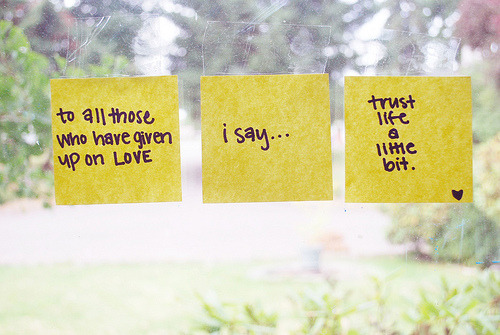 to all those
who have given
up on LOVE
i say...
trust
life
a
little
bit.